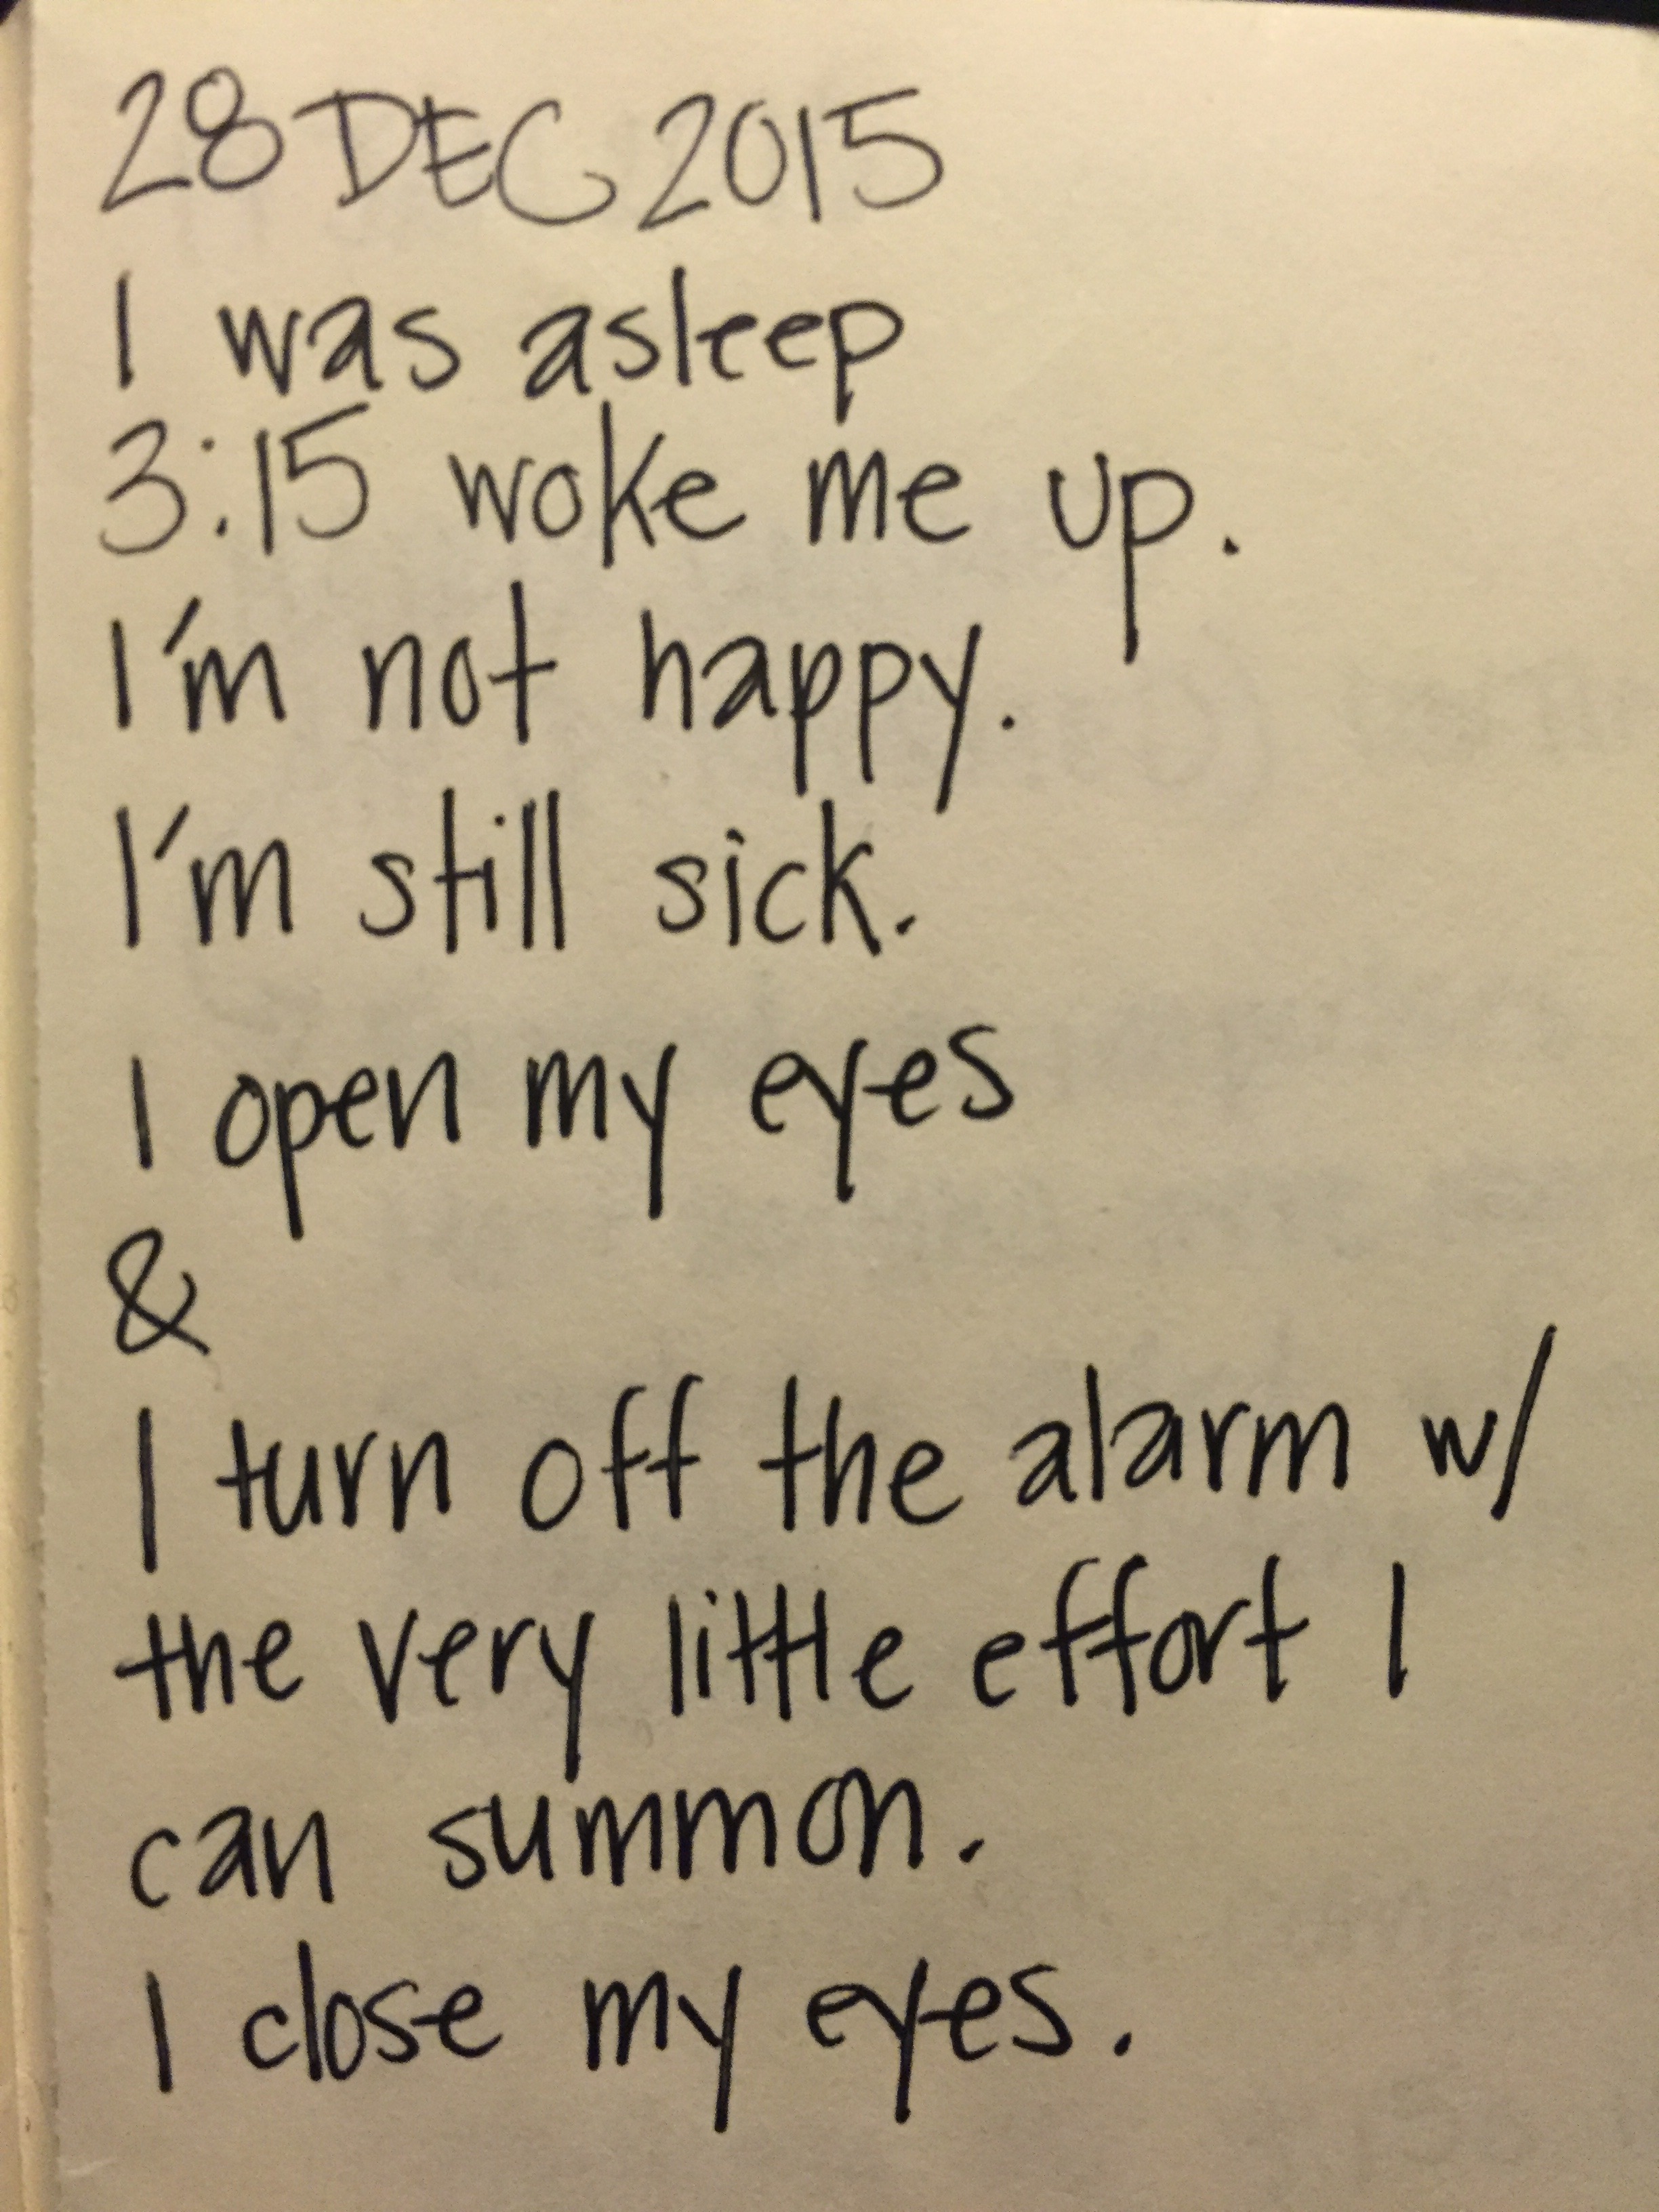 28 DEC 2015
I was asleep
3:15 woke me up.
I'm not happy.
I'm still sick.
I open my eyes
&
I turn off the alarm w/
the very little effort I
can summon.
I close my eyes.